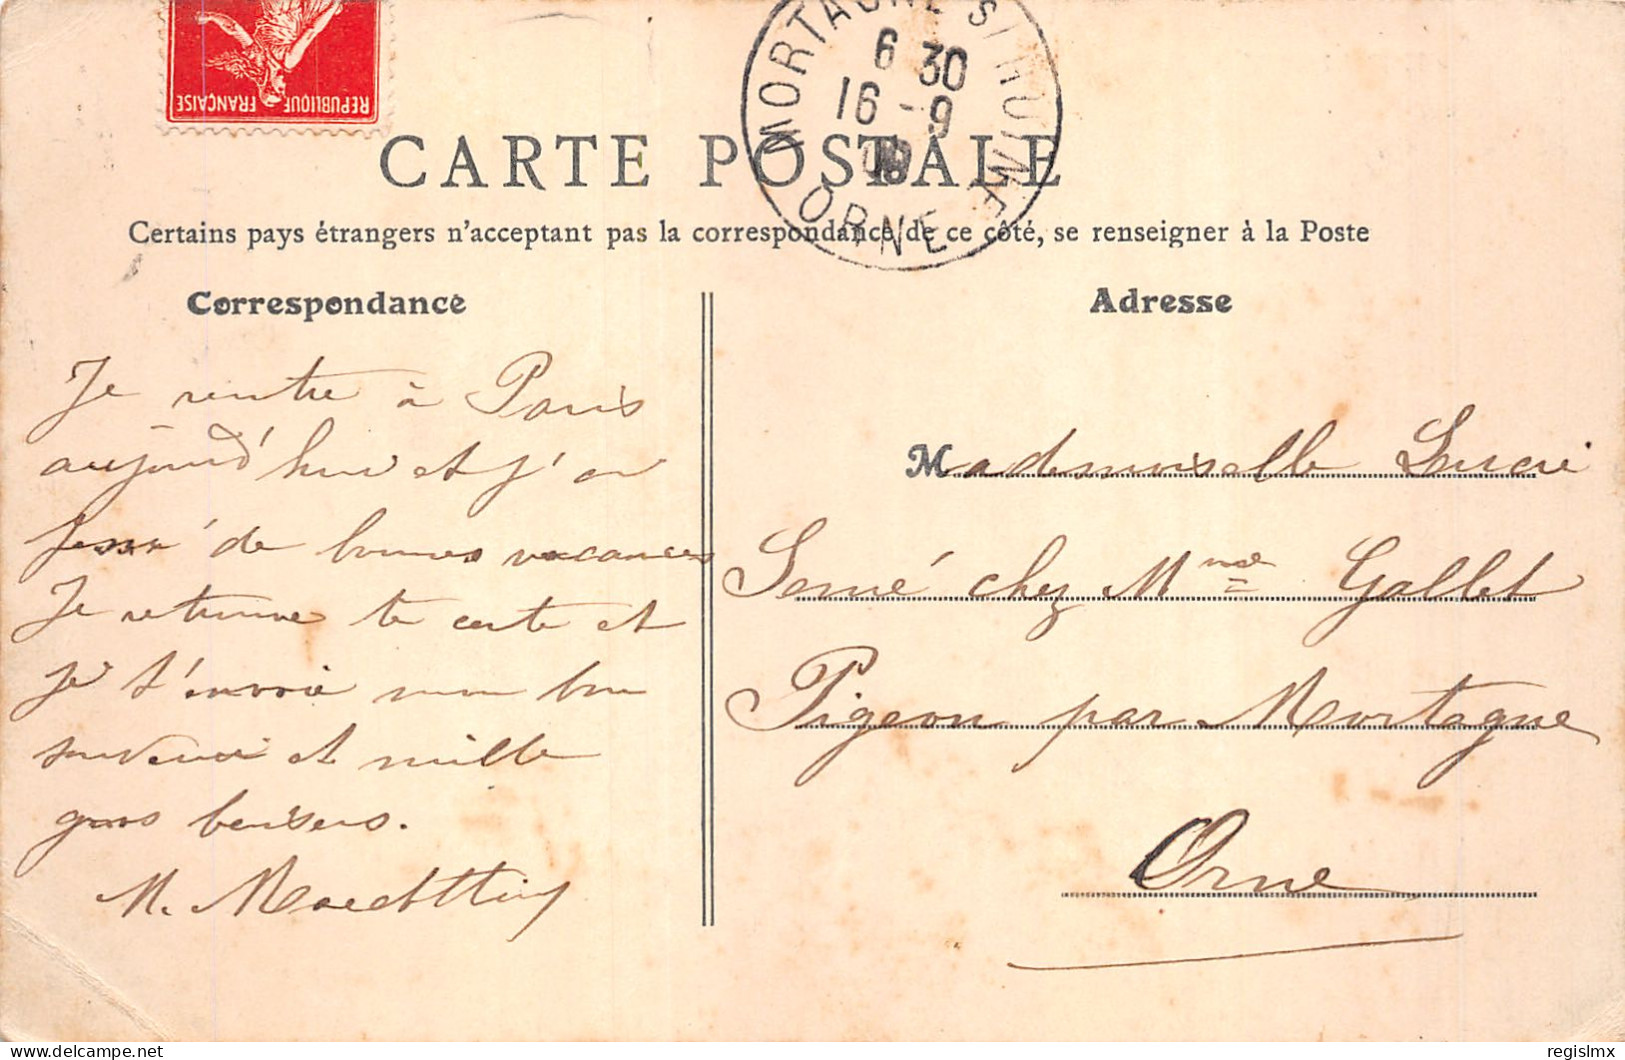 REPUBLIQUE FRANÇAISE
MORTAGNE S/ HUINE
6 30
16 - 9
09
ORNE
CARTE POSTALE
Certains pays étrangers n'acceptant pas la correspondance de ce côté, se renseigner à la Poste
Correspondance
Je rentre à Paris
aujourd'hui et j'ai
de bonnes vacances
Je retourne ta carte et
je t'envoie mon bon
souvenir et mille
gros baisers.
M.
Adresse
Mademoiselle Lucie
chez Mme Gallet
Pigeon par Mortagne
Orne
regislmx